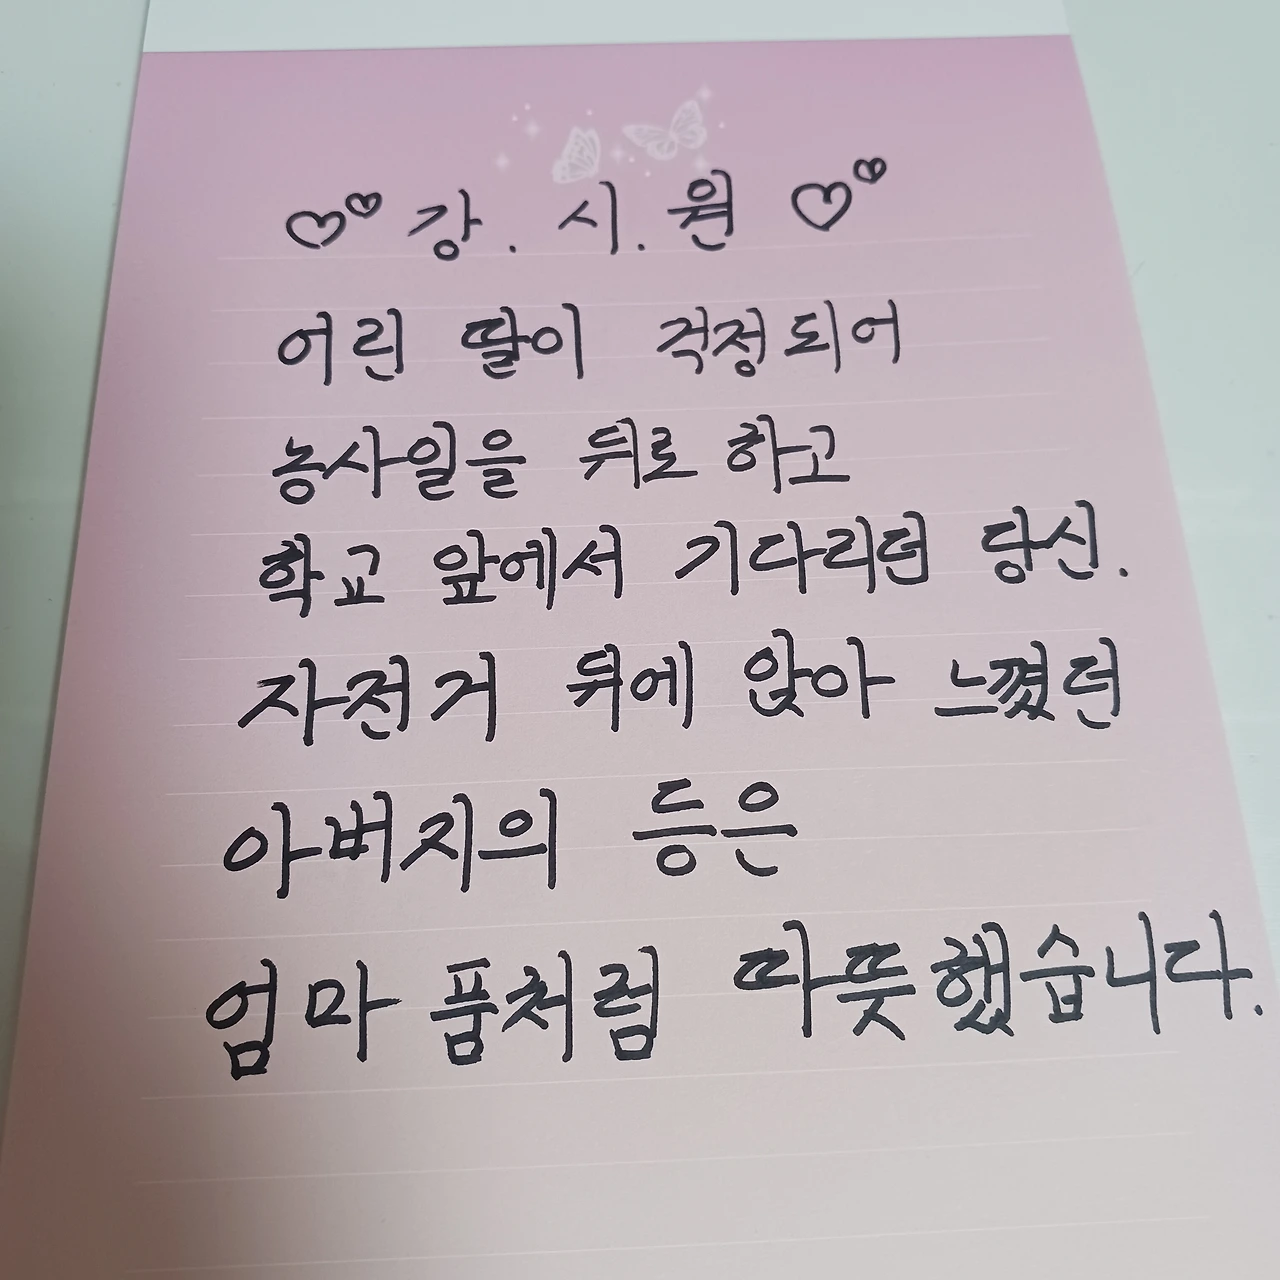 ♡♡ 강.시.원 ♡♡
어린 딸이 걱정되어
농사일을 뒤로 하고
학교 앞에서 기다리던 당신.
자전거 뒤에 앉아 느꼈던
아버지의 등은
엄마 품처럼 따뜻했습니다.